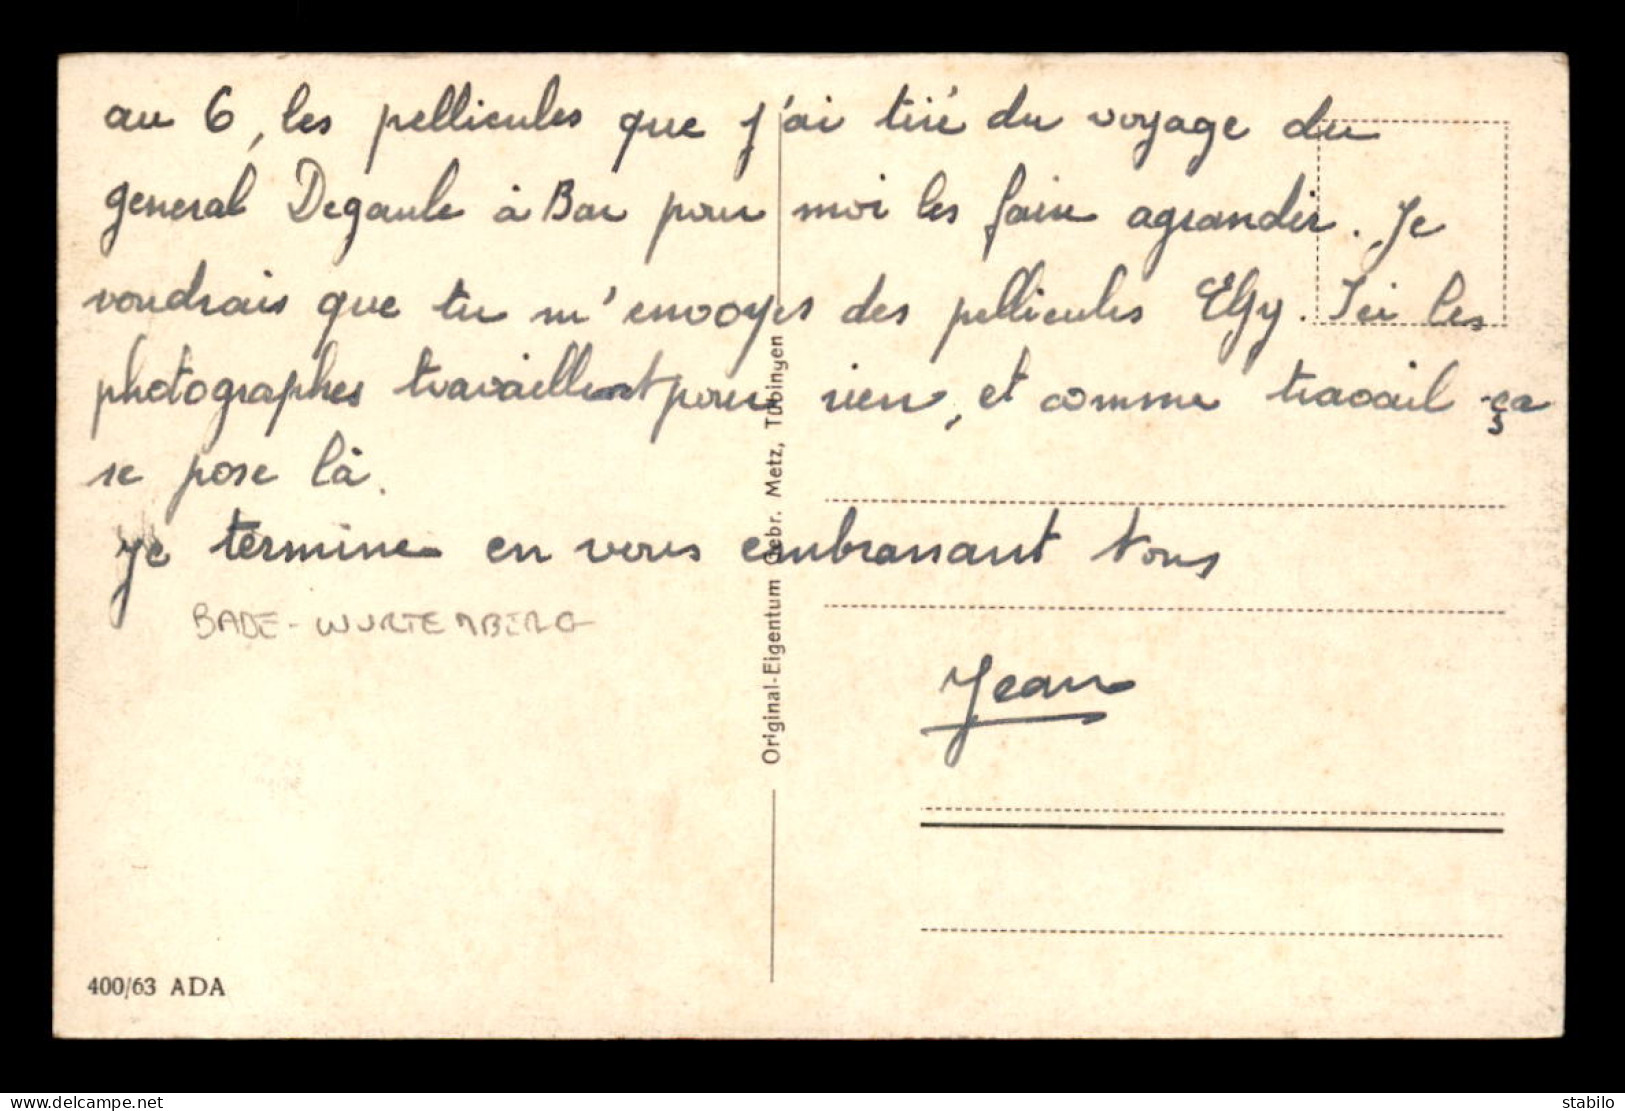 au 6, les pellicules que j'ai tiré du voyage du
general Degaule à Bar pour moi les faire agrandir. Je
voudrais que tu m'envoyes des pellicules Elgy. Ici les
photographes travaillent pour rien, et comme travail ça
se pose là.
Je termine en vous embrassant tous
BADE-WURTEMBERG
Jean
Original-Eigentum Gebr. Metz, Tübingen
400/63 ADA
www.delcampe.net
stabilo